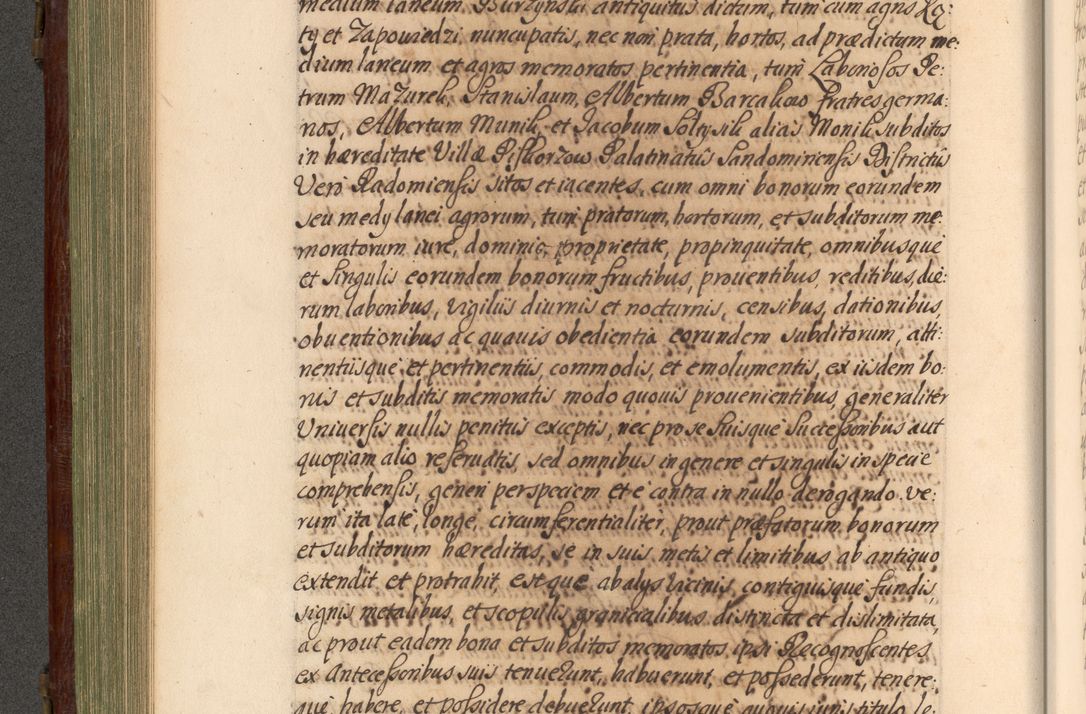 medium laneum Burzynski antiquitus dictum, tum cum agris Ką:
ty et Zapowiedzi nuncupatis, nec non prata, hortos, ad prædictum me:
dium laneum et agros memoratos pertinentia, tum Laboriosos Pe:
trum Mazurek, Stanislaum, Albertum Barcakowo fratres germa:
nos, Albertum Munik, et Jacobum Soltysik alias Monik subditos
in hæreditate Villæ Piskorzow Palatinatûs Sandomiriensis Districtûs
Verò Radomiensis sitos et iacentes, cum omni bonorum eorundem
seu medÿ lanei agrorum, tum pratorum, hortorum, et subditorum me:
moratorum iure, dominio, proprietate, propinquitate, omnibusque
et singulis eorundem bonorum fructibus, prouentibus, reditibus, die:
rum laboribus, vigiliis diurnis et nocturnis, censibus, dationibus,
obuentionibus ac quauis obedientia eorundem subditorum, atti:
nentiisque et pertinentiis, commodis, et emolumentis, ex iisdem bo:
nis et subditis memoratis modo quouis prouenientibus, generaliter
Uniuersis nullis penitus exceptis, nec pro se suisque Successoribus aut
quopiam alio reseruatis, sed omnibus in genere et singulis in specie
comprehensis, generi per speciem et è contra in nullo derogando. Ve:
rum ita latè, longè, circumferentialiter, prout præfatorum bonorum
et subditorum hæreditas, se in suis metis et limitibus ab antiquo
extendit et protrahit, estque ab alÿs vicinis, contiguisque fundis,
signis metalibus, et scopulis granicialibus distincta et dislimitata,
ac prout eadem bona et subditos memoratos ipsi Recognoscentes
ex Antecessoribus suis tenuerunt, habuerunt, et possederunt, tenere:
que habere, et possidere debuerunt, ipsosque quouis iuris titulo le: